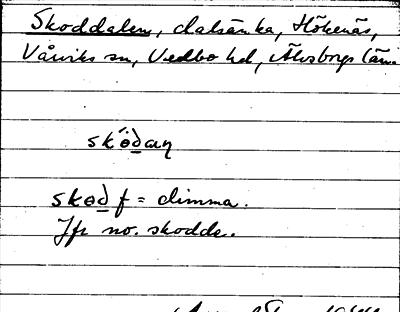 Skoddalen, dalsänka, Hökenäs,
Vårviks sn, Vedbo hd, Älvsborgs län
skꝋ̀dan
skɵd f = dimma.
Jfr no. skodde.